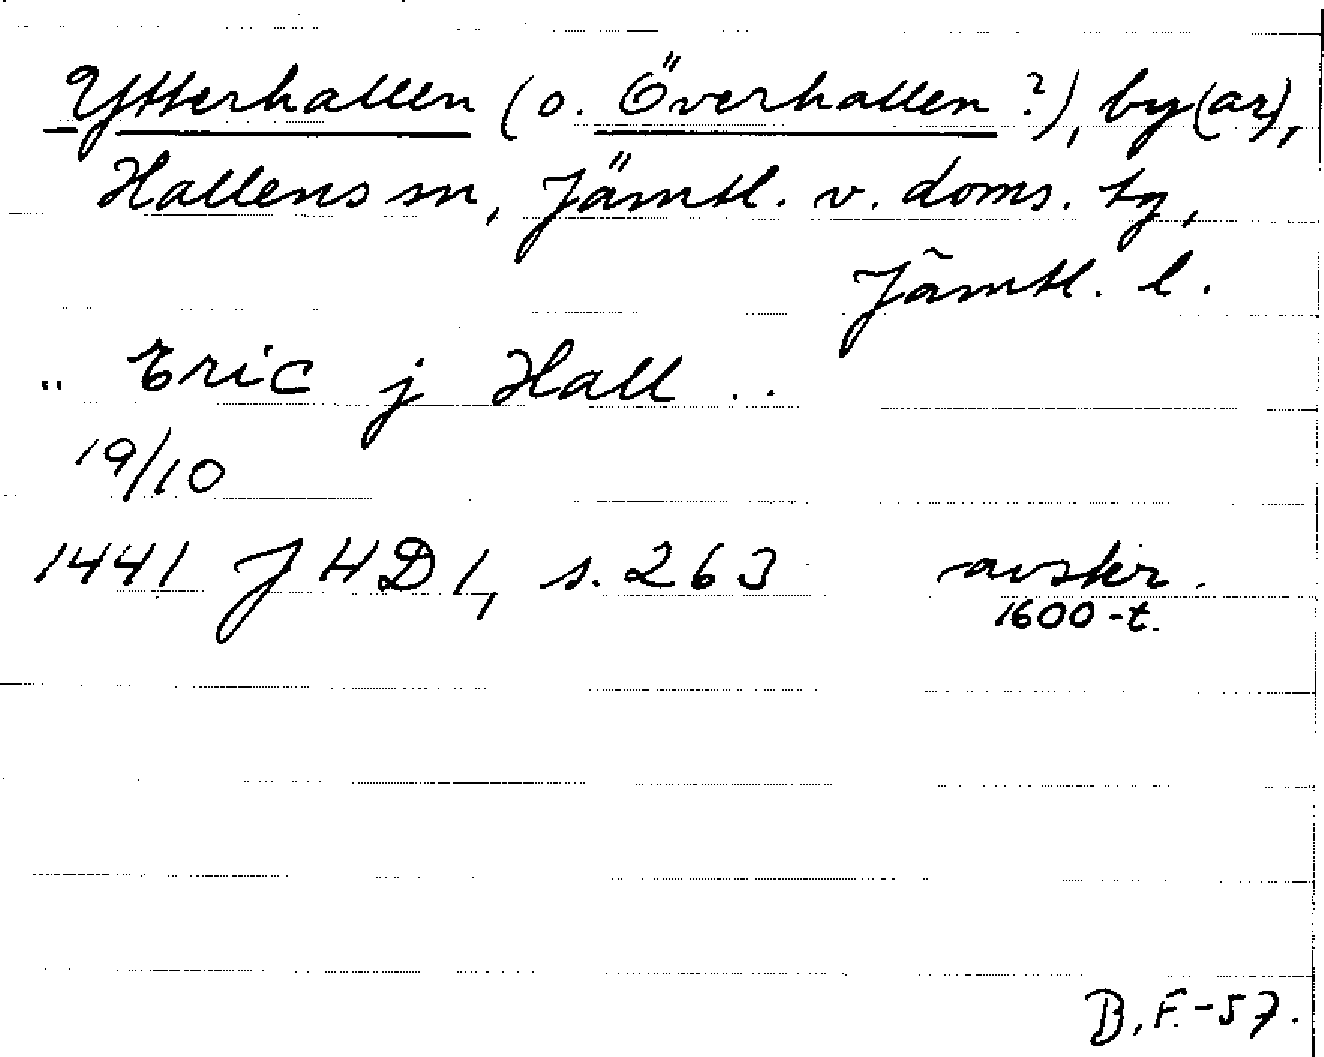 Ytterhallen (o. Överhallen ?), by(ar),
Hallens sn, Jämtl. v. doms. tg,
Jämtl. l.
.. Eric j Hall ..
19/10
1441 JHD 1, s. 263 avskr.
1600-t.
B.F.-57.